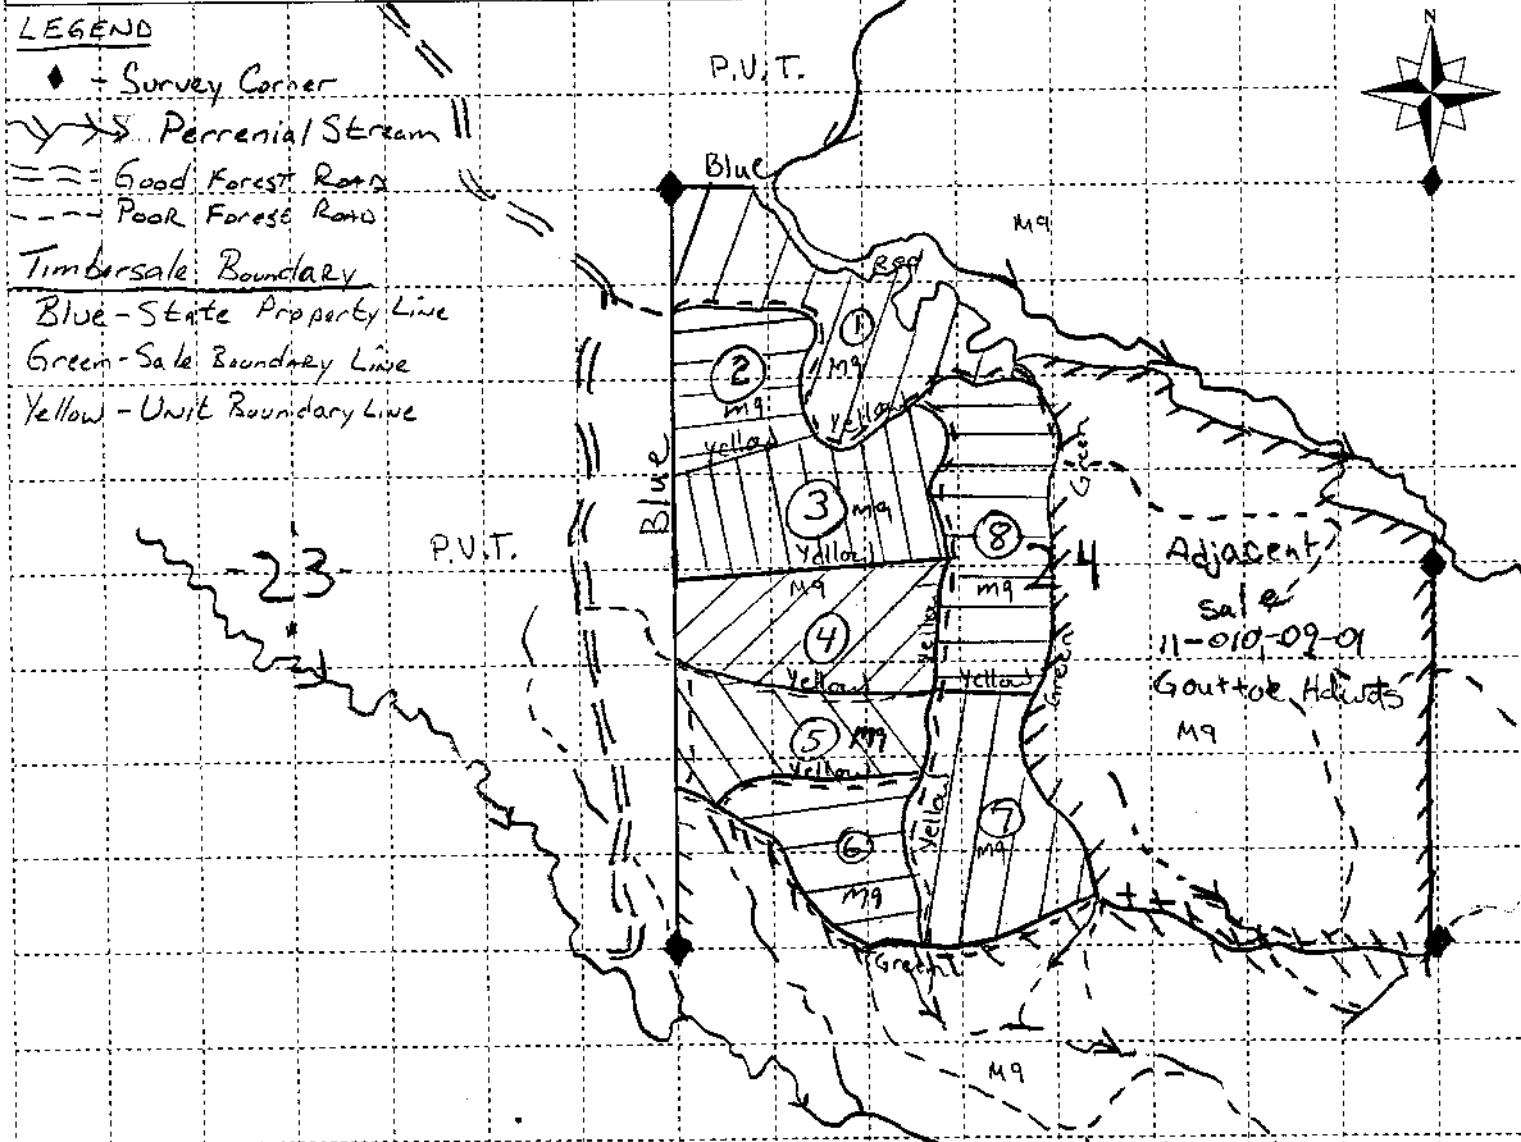 LEGEND
- Survey Corner
Perrenial Stream
Good Forest Road
Poor Forest Road
Timbersale Boundary
Blue-State Property Line
Green-Sale Boundary Line
Yellow-Unit Boundary Line
N
P.V.T.
Blue
M9
Red
1
M9
2
M9
Yellow
Yellow
Blue
3 M9
Yellow
M9
8
M9
Green
24
P.V.T.
-23-
Adjacent
Sale
11-010-09-01
M9
4
Yellow
Yellow
Yellow
Green
5 M9
Yellow
6
M9
Yellow
7
M9
Green
M9